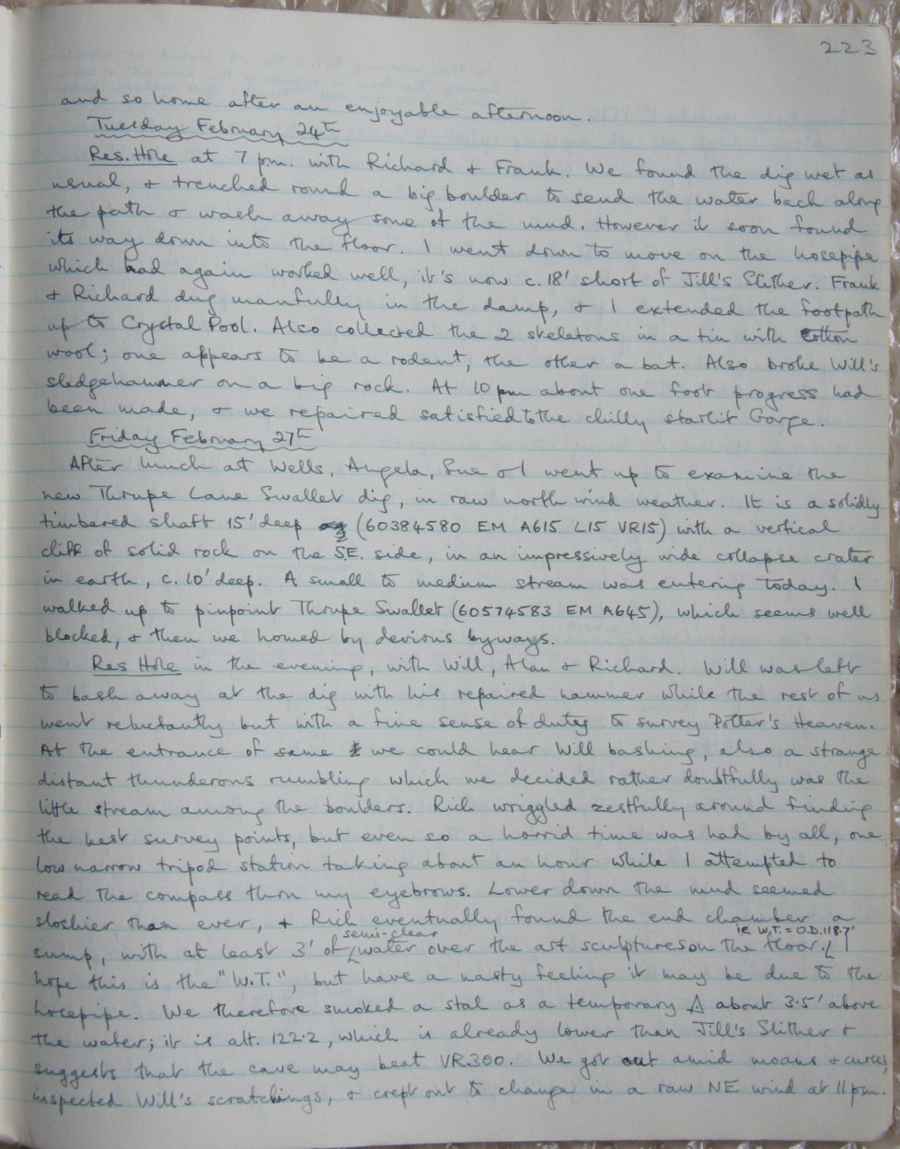 223
and so home after an enjoyable afternoon.
Tuesday February 24th
Res. Hole at 7 pm. with Richard & Frank. We found the dig wet as
usual, & trenched round a big boulder to send the water back along
the path & wash away some of the mud. However it soon found
its way down into the floor. I went down to move on the hosepipe
which had again worked well, it's now c.18' short of Jill's Slither. Frank
& Richard dug manfully in the damp, & I extended the footpath
up to Crystal Pool. Also collected the 2 skeletons in a tin with cotton
wool; one appears to be a rodent, the other a bat. Also broke Will's
sledgehammer on a big rock. At 10 pm about one foot progress had
been made, & we repaired satisfied to the chilly starlit Gorge.
Friday February 27th
After lunch at Wells, Angela, Sue & I went up to examine the
new Thrupe Lane Swallet dig, in raw north wind weather. It is a solidly
timbered shaft 15' deep (60384580 EM A615 L15 VR15) with a vertical
cliff of solid rock on the S.E. side, in an impressively wide collapse crater
in earth, c.10' deep. A small to medium stream was entering today. I
walked up to pinpoint Thrupe Swallet (60574583 EM A645), which seems well
blocked, & then we homed by devious byways.
Res Hole in the evening, with Will, Alan & Richard. Will was left
to bash away at the dig with his repaired hammer while the rest of us
went reluctantly but with a fine sense of duty to survey Potter's Heaven.
At the entrance of same we could hear Will bashing, also a strange
distant thunderous rumbling which we decided rather doubtfully was the
little stream among the boulders. Rich wriggled zestfully around finding
the best survey points, but even so a horrid time was had by all, one
low narrow tripod station taking about an hour while I attempted to
read the compass thru my eyebrows. Lower down the mud seemed
sloshier than ever, & Rich eventually found the end chamber a
sump, with at least 3' of semi-clear water over the art sculptures on the floor. ie W.T. = O.D. 118.7' I
hope this is the "W.T.", but have a nasty feeling it may be due to the
hosepipe. We therefore smoked a stal as a temporary Δ about 3.5' above
the water; it is alt. 122.2, which is already lower than Jill's Slither &
suggests that the cave may beat VR300. We got out amid moans & curses,
inspected Will's scratchings, & crept out to change in a raw NE wind at 11pm.